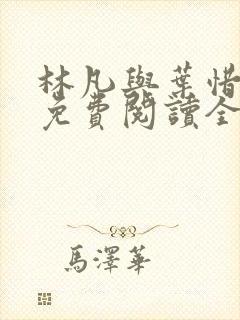 林凡與葉惜
免費閱讀全
馬澤華